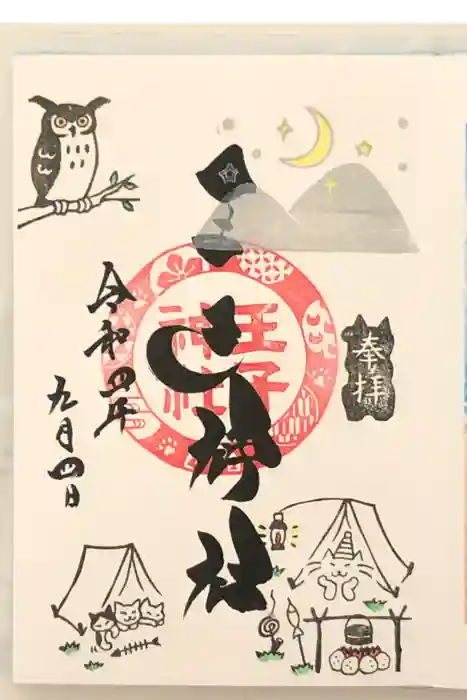 奉拝
王子
神社
神社
令和四年
九月四日